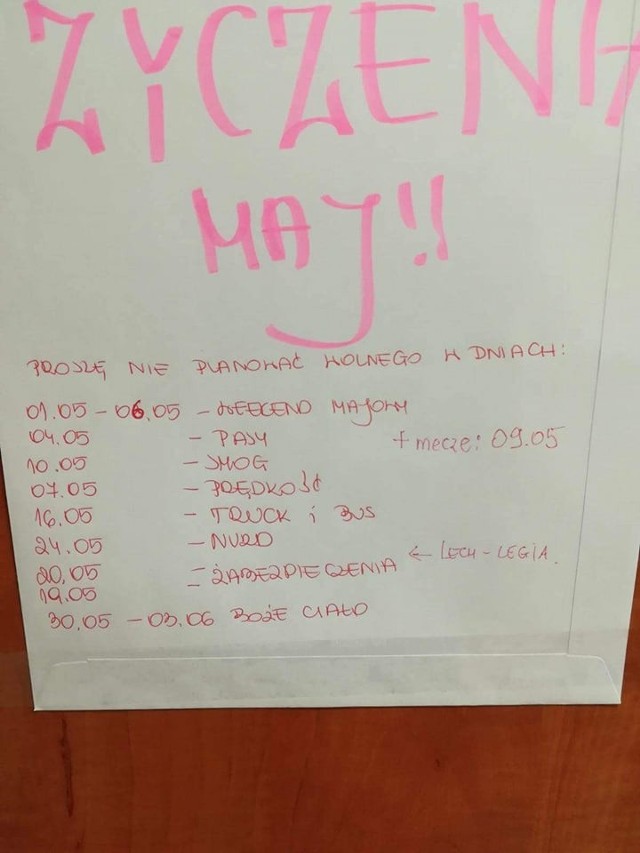 ŻYCZENIA
MAJ!!
PROSZĘ NIE PLANOWAĆ WOLNEGO W DNIACH:
01.05 - 06.05 - WEEKEND MAJOWY
04.05 - PASY
+ mecze: 09.05
10.05 - SMOG
07.05 - PRĘDKOŚĆ
16.05 - TRUCK i BUS
24.05 - NURD
20.05 - ZABEZPIECZENIA ← LECH - LEGIA.
19.05 -
30.05 - 03.06 BOŻE CIAŁO